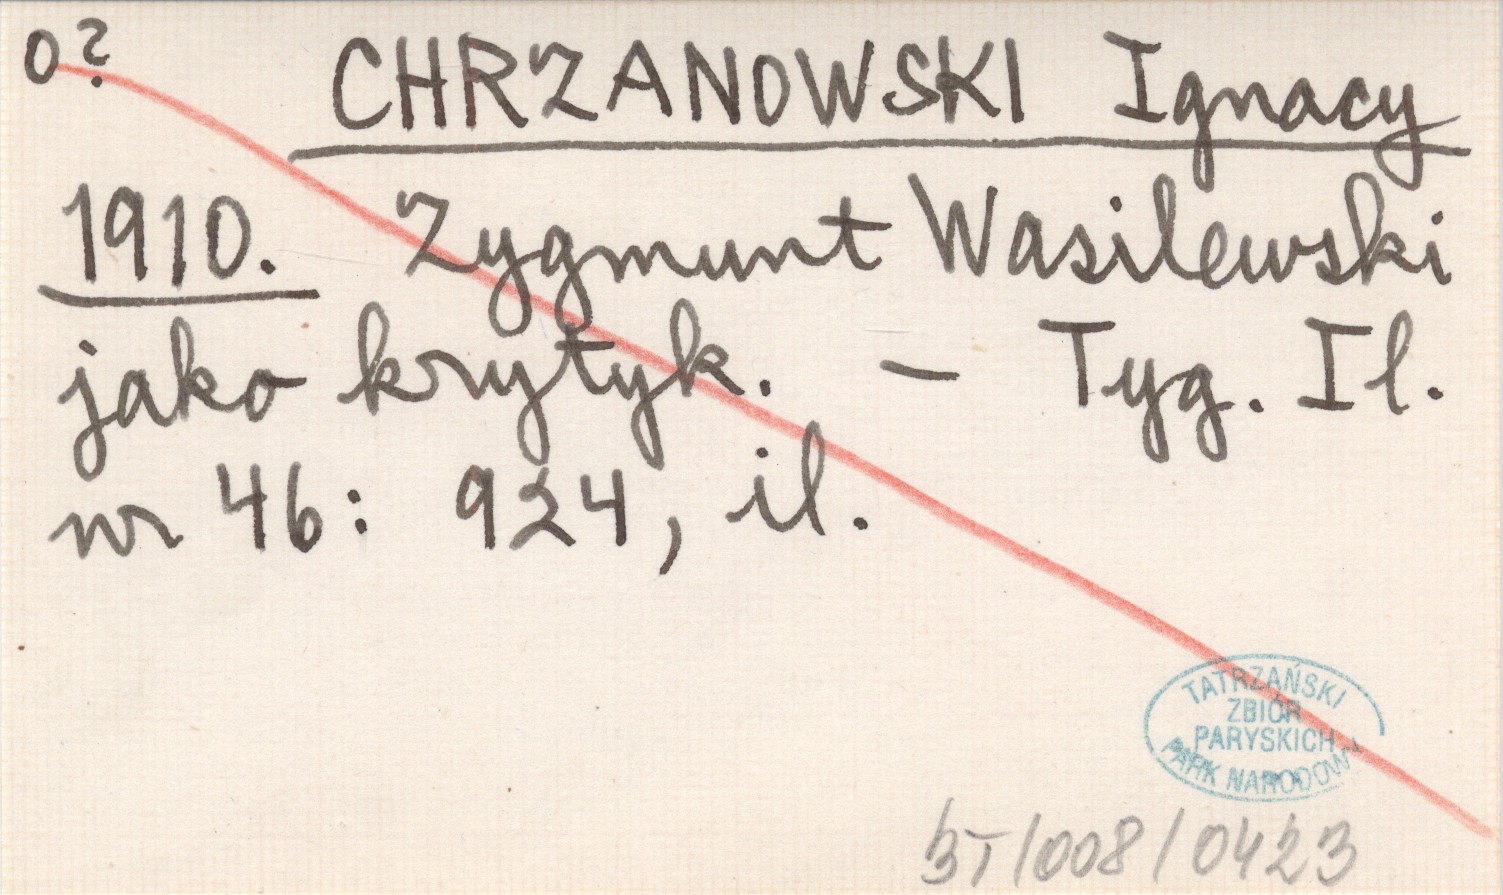 o?
CHRZANOWSKI Ignacy
1910. Zygmunt Wasilewski
jako krytyk. – Tyg. Il.
nr 46: 924, il.
TATRZAŃSKI
ZBIÓR
PARYSKICH
PARK NARODOWY
BT/008/0423